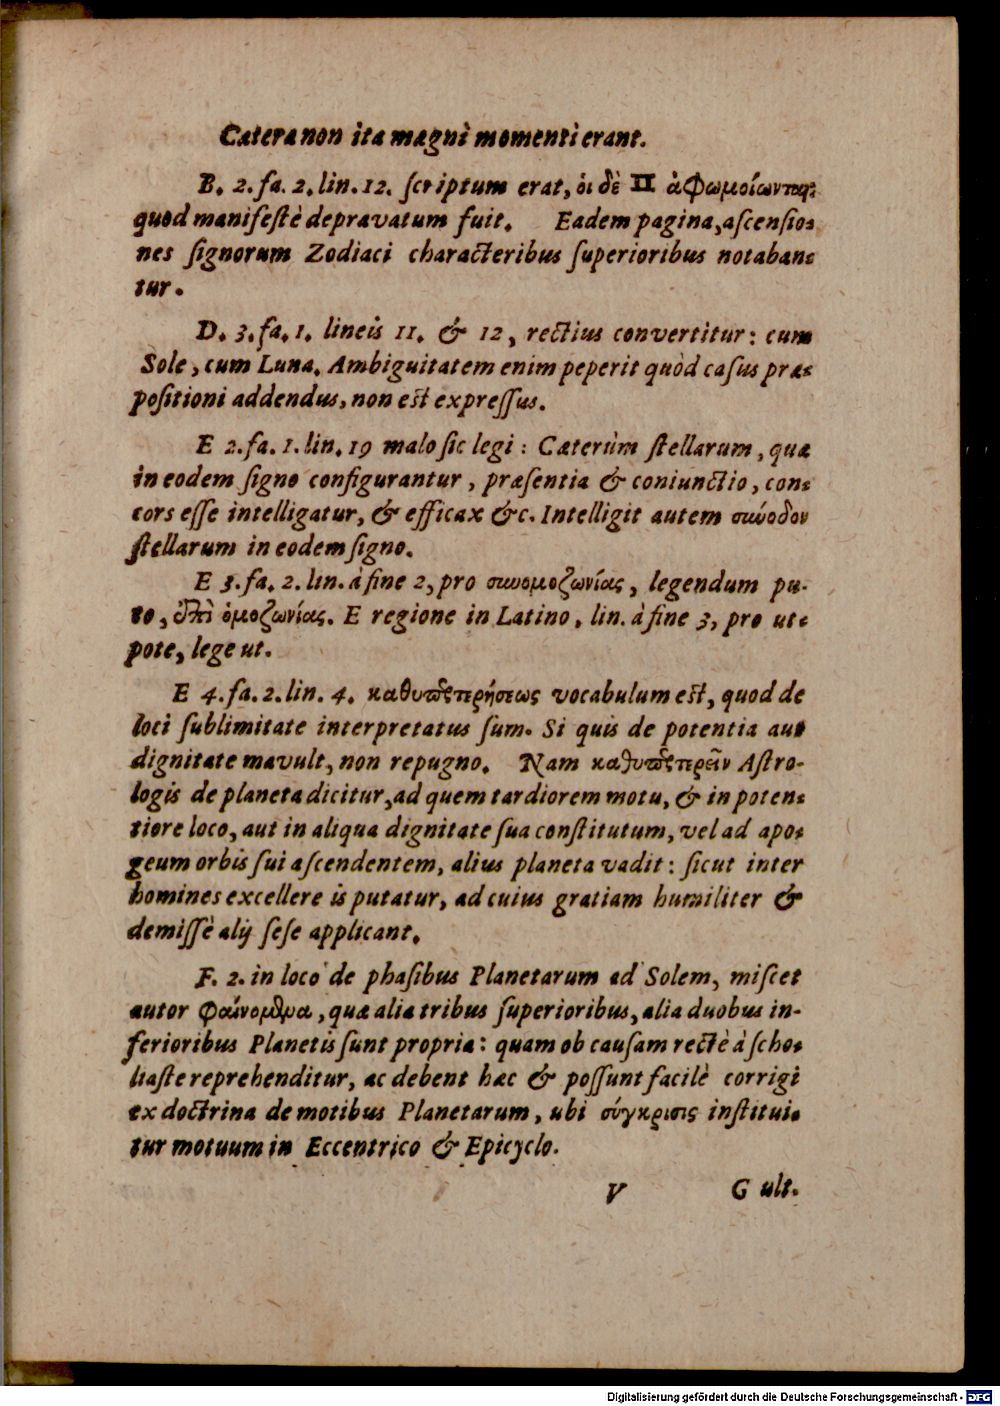 Cætera non ita magni momenti erant.
B. 2. fa. 2. lin. 12. scriptum erat, οἱ δὲ Π ἀφωμοίωνται:
quod manifestè depravatum fuit. Eadem pagina, ascensio-
nes signorum Zodiaci characteribus superioribus notaban-
tur.
D. 3. fa. 1. lineis 11. & 12, rectius convertitur: cum
Sole, cum Luna. Ambiguitatem enim peperit quòd casus præ-
positioni addendus, non est expressus.
E 2. fa. 1. lin. 19 malo sic legi: Cæterùm stellarum, quæ
in eodem signo configurantur, præsentia & coniunctio, con-
cors esse intelligatur, & efficax &c. Intelligit autem σιώοδον
stellarum in eodem signo.
E 3. fa. 2. lin. à fine 2, pro σιωομοζωνίας, legendum pu-
to, ἐπὶ ὁμοζωνίας. E regione in Latino, lin. à fine 3, pro ut-
pote, lege ut.
E 4. fa. 2. lin. 4. καθυπερτερήσεως vocabulum est, quod de
loci sublimitate interpretatus sum. Si quis de potentia aut
dignitate mavult, non repugno. Nam καθυπερτερεῖν Astro-
logis de planeta dicitur, ad quem tardiorem motu, & in poten-
tiore loco, aut in aliqua dignitate sua constitutum, vel ad apo-
geum orbis sui ascendentem, alius planeta vadit: sicut inter
homines excellere is putatur, ad cuius gratiam humiliter &
demissè alij sese applicant.
F. 2. in loco de phasibus Planetarum ad Solem, miscet
autor φαινόμενα, quæ alia tribus superioribus, alia duobus in-
ferioribus Planetis sunt propria: quam ob causam rectè à scho-
liaste reprehenditur, ac debent hæc & possunt facilè corrigi
ex doctrina de motibus Planetarum, ubi σύγκρισις institui-
tur motuum in Eccentrico & Epicyclo.
V G ult.
Digitalisierung gefördert durch die Deutsche Forschungsgemeinschaft - DFG